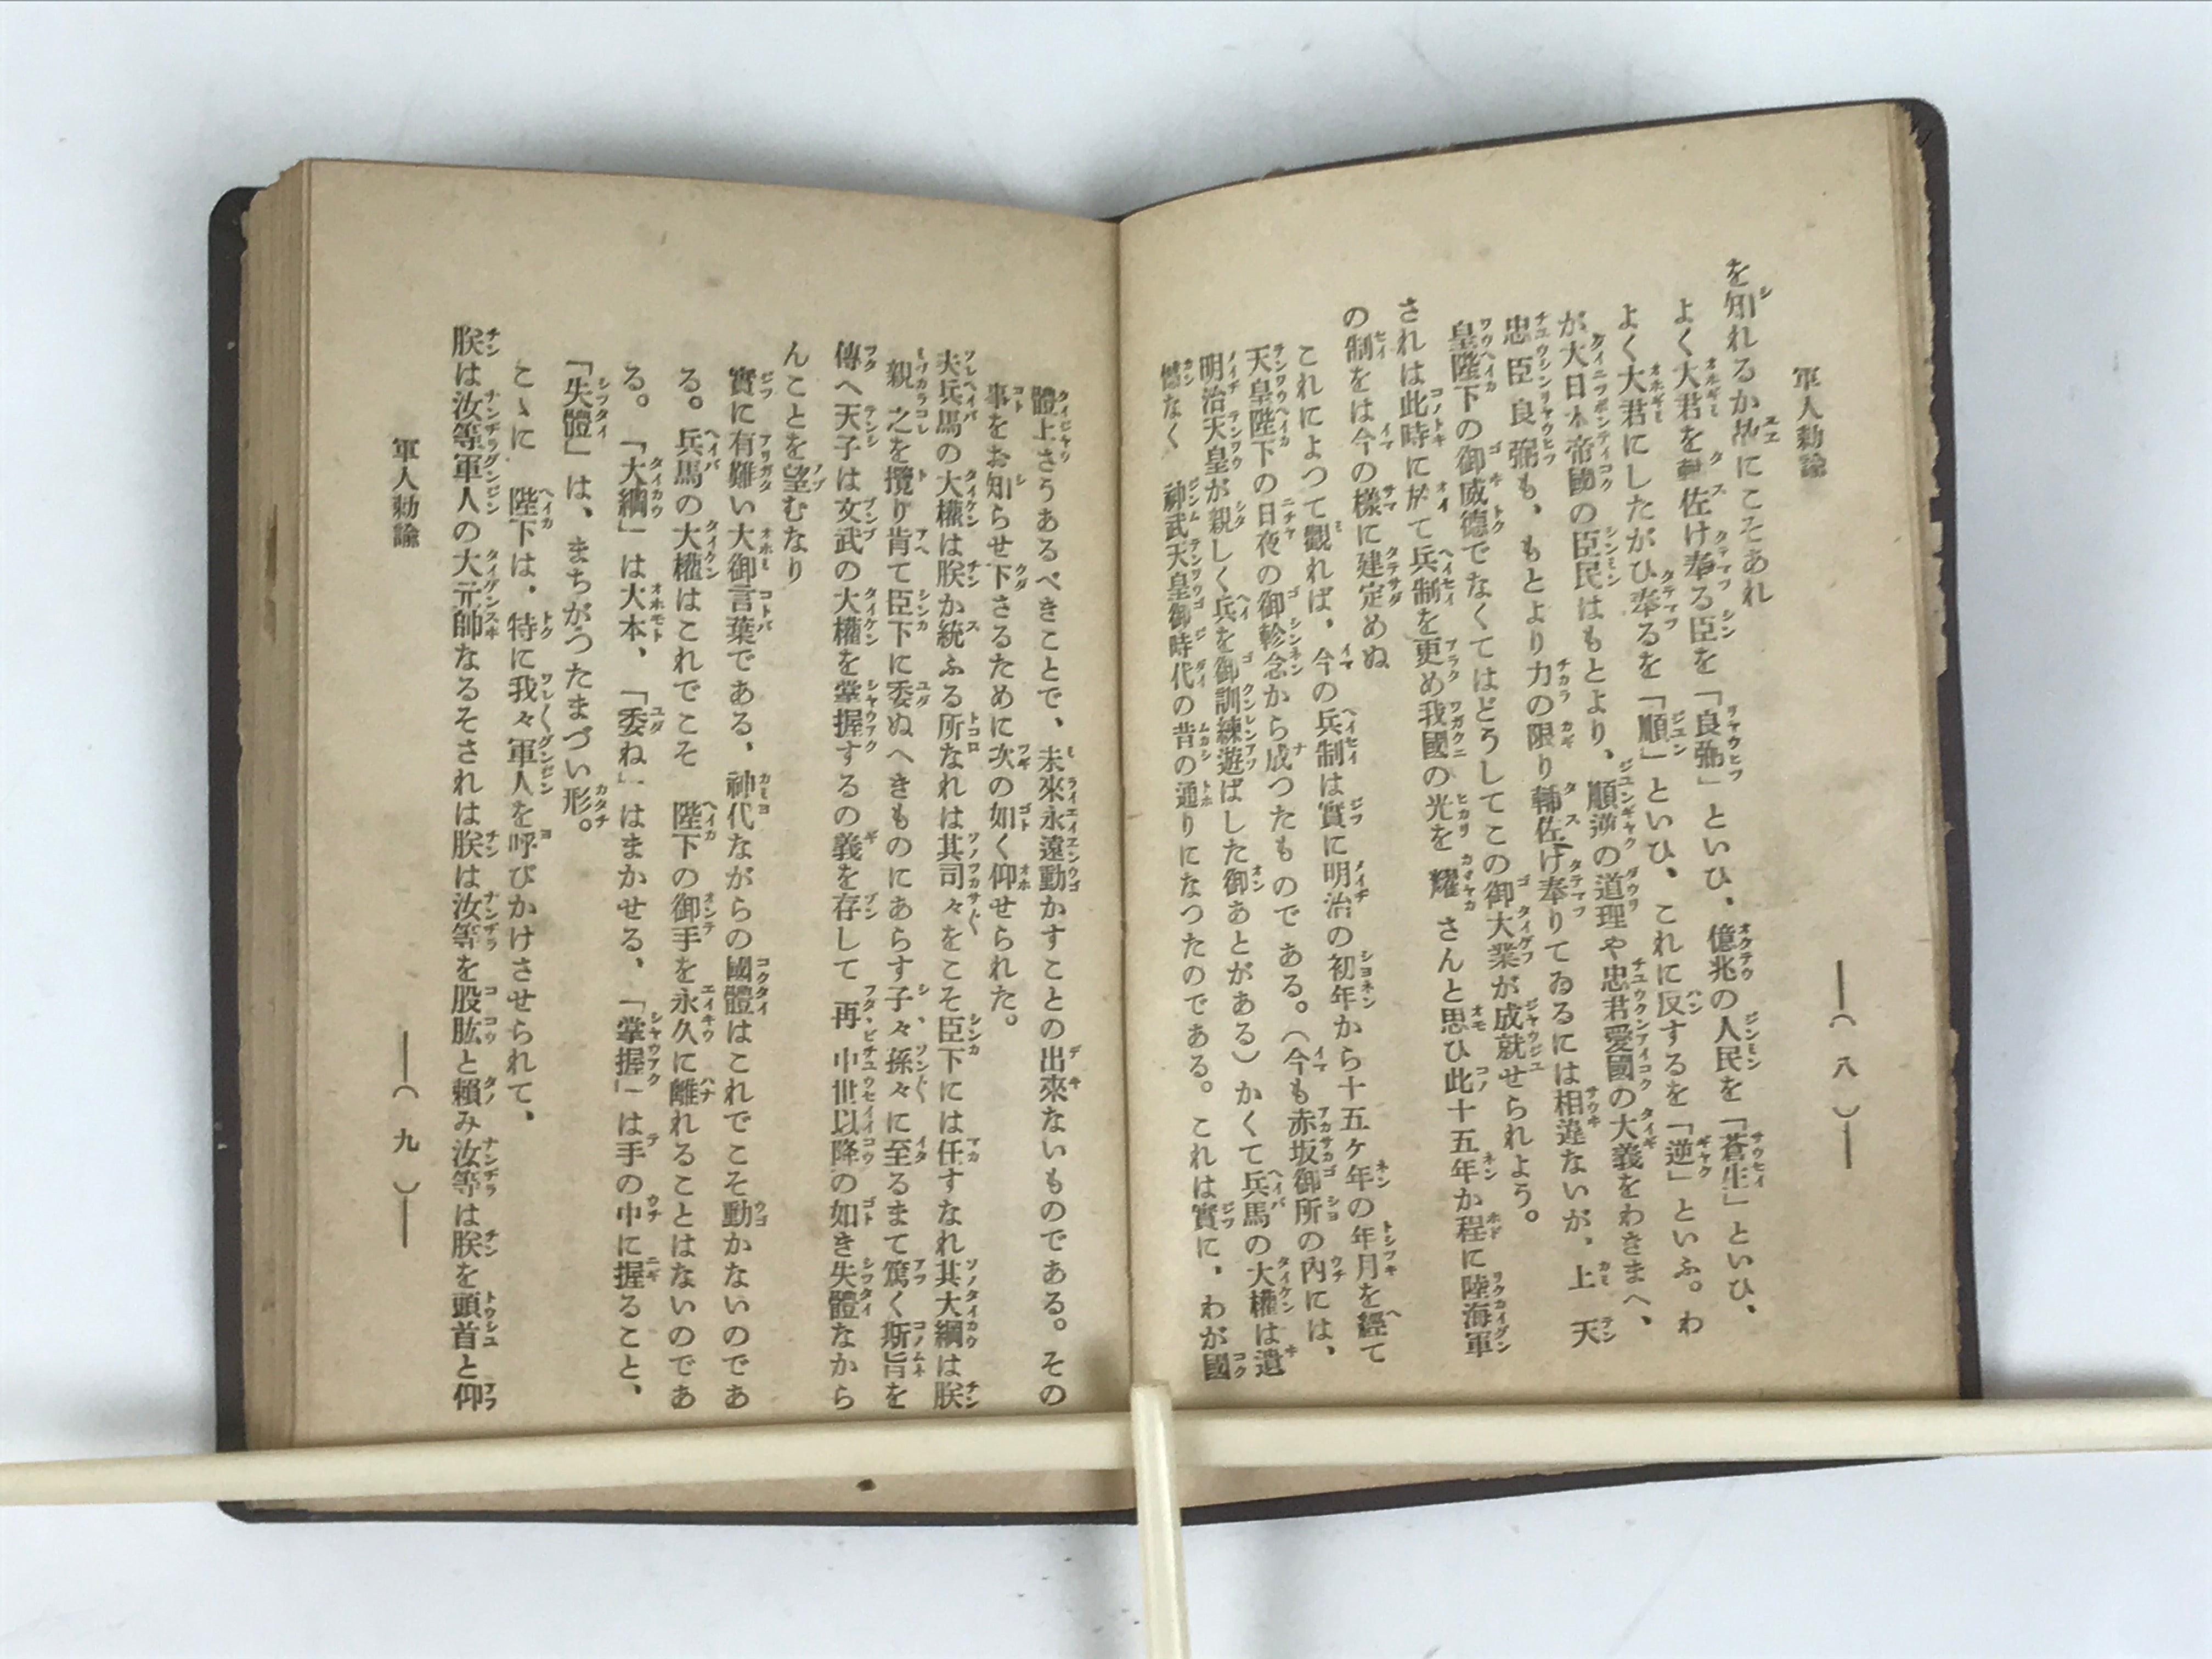 軍人勅諭
―(八)―
を知れるか故にこそあれ
よく大君を輔佐け奉る臣を「良弼」といひ、億兆の人民を「蒼生」といひ、
よく大君にしたがひ奉るを「順」といひ、これに反するを「逆」といふ。わ
が大日本帝國の臣民はもとより、順逆の道理や忠君愛國の大義をわきまへ、
忠臣良弼も、もとより力の限り輔佐け奉りてゐるには相違ないが、上 天
皇陛下の御威德でなくてはどうしてこの御大業が成就せられよう。
されは此時に於て兵制を更め我國の光を耀さんと思ひ此十五年か程に陸海軍
の制をは今の樣に建定めぬ
これによつて觀れば、今の兵制は實に明治の初年から十五ヶ年の年月を經て
天皇陛下の日夜の御軫念から成つたものである。(今も赤坂御所の內には、
明治天皇が親しく兵を御訓練遊ばした御あとがある)かくて兵馬の大權は遺
憾なく 神武天皇御時代の昔の通りになつたのである。これは實に、わが國
體上さうあるべきことで、未來永遠動かすことの出來ないものである。その
事をお知らせ下さるために次の如く仰せられた。
夫兵馬の大權は朕か統ふる所なれは其司々をこそ臣下には任すなれ其大綱は朕
親之を攬り肯て臣下に委ぬへきものにあらす子々孫々に至るまて篤く斯旨を
傳へ天子は文武の大權を掌握するの義を存して再中世以降の如き失體なから
んことを望むなり
實に有難い大御言葉である、神代ながらの國體はこれでこそ動かないのであ
る。兵馬の大權はこれでこそ 陛下の御手を永久に離れることはないのであ
る。「大綱」は大本、「委ね」はまかせる、「掌握」は手の中に握ること、
「失體」は、まちがつたまづい形。
こゝに 陛下は、特に我々軍人を呼びかけさせられて、
朕は汝等軍人の大元帥なるそされは朕は汝等を股肱と賴み汝等は朕を頭首と仰
軍人勅諭
―(九)―